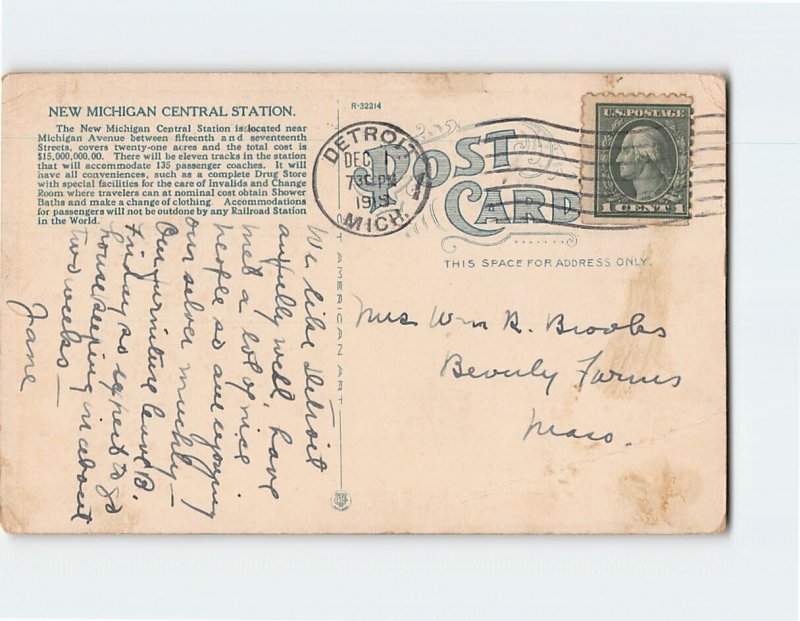 NEW MICHIGAN CENTRAL STATION.
The New Michigan Central Station is located near
Michigan Avenue between fifteenth and seventeenth
Streets, covers twenty-one acres and the total cost is
$15,000,000.00. There will be eleven tracks in the station
that will accommodate 135 passenger coaches. It will
have all conveniences, such as a complete Drug Store
with special facilities for the care of Invalids and Change
Room where travelers can at nominal cost obtain Shower
Baths and make a change of clothing. Accommodations
for passengers will not be outdone by any Railroad Station
in the World.
R-32214
POST
CARD
THIS SPACE FOR ADDRESS ONLY.
DETROIT
DEC 1
7 30 PM
MICH.
U.S. POSTAGE
1 CENT 1
AMERICAN ART
We like Detroit
awfully well, have
met a lot of nice
people so are enjoying
our selves muchly —
Our furniture came
Friday so expect to go
housekeeping in about
two weeks —
Jane
Mrs Wm R. Brooks
Beverly Farms
Mass.